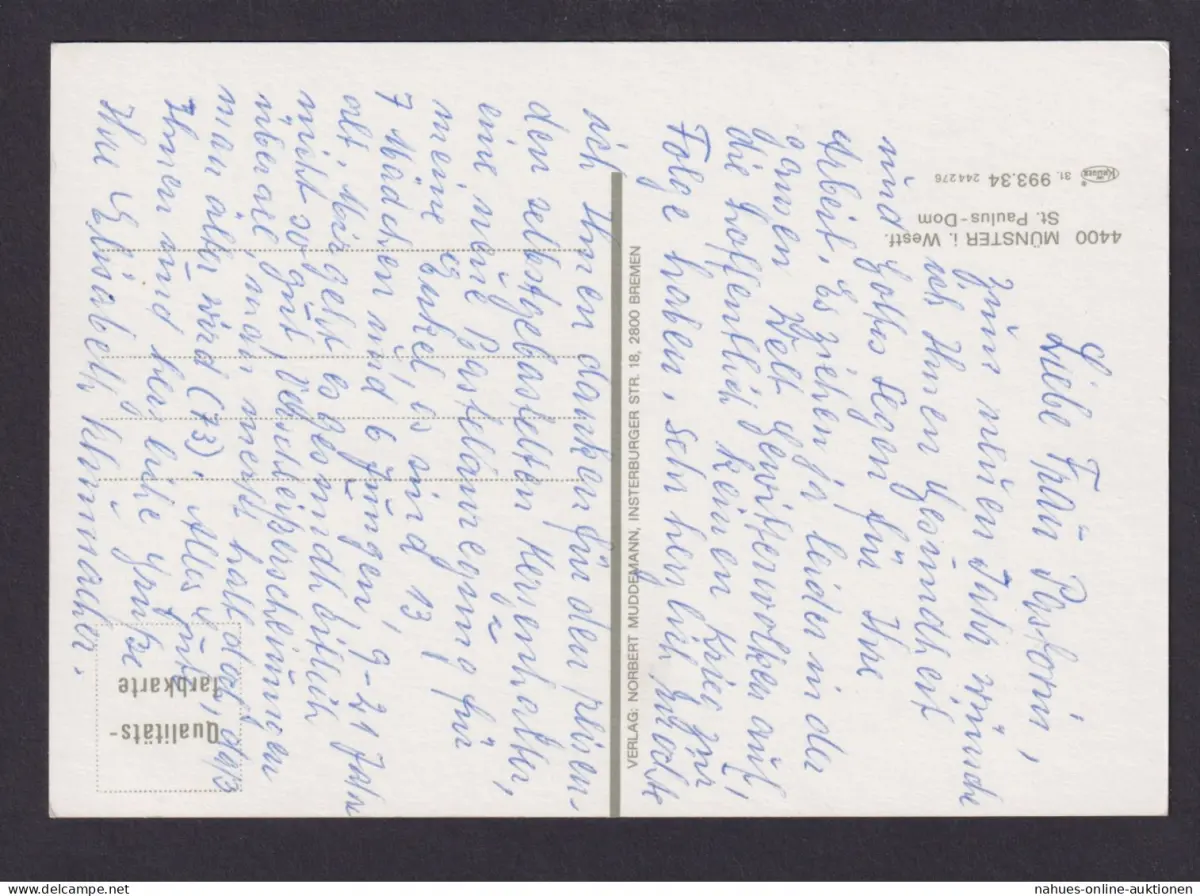 Liebe Frau Pastorin,
zum neuen Jahr wünsche
ich Ihnen Gesundheit
und Gottes Segen für Ihre
Arbeit. Es ziehen ja leider in der
ganzen Welt Gewitterwolken auf,
die hoffentlich keinen Krieg zur
Folge haben, sehr herzlich möchte
ich Ihnen danken für den
den selbstgebastelten Kerzenhalter,
eine neue Bastelanregung für
meine Enkel, es sind 13,
7 Mädchen und 6 Jungen, 9-21 Jahre
alt. Mir geht es gesundheitlich
nicht so gut, Verschleißerscheinungen
überall, man merkt halt doch, daß
man älter wird (73). Alles Gute
Ihnen und herzliche Grüße
Ihre Elisabeth
4400 MÜNSTER i. Westf.
St. Paulus-Dom
31. 993.34 244276
Krüger
VERLAG: NORBERT MUDDEMANN, INSTERBURGER STR. 18, 2800 BREMEN
Qualitäts-
farbkarte
nahues-online-auktionen